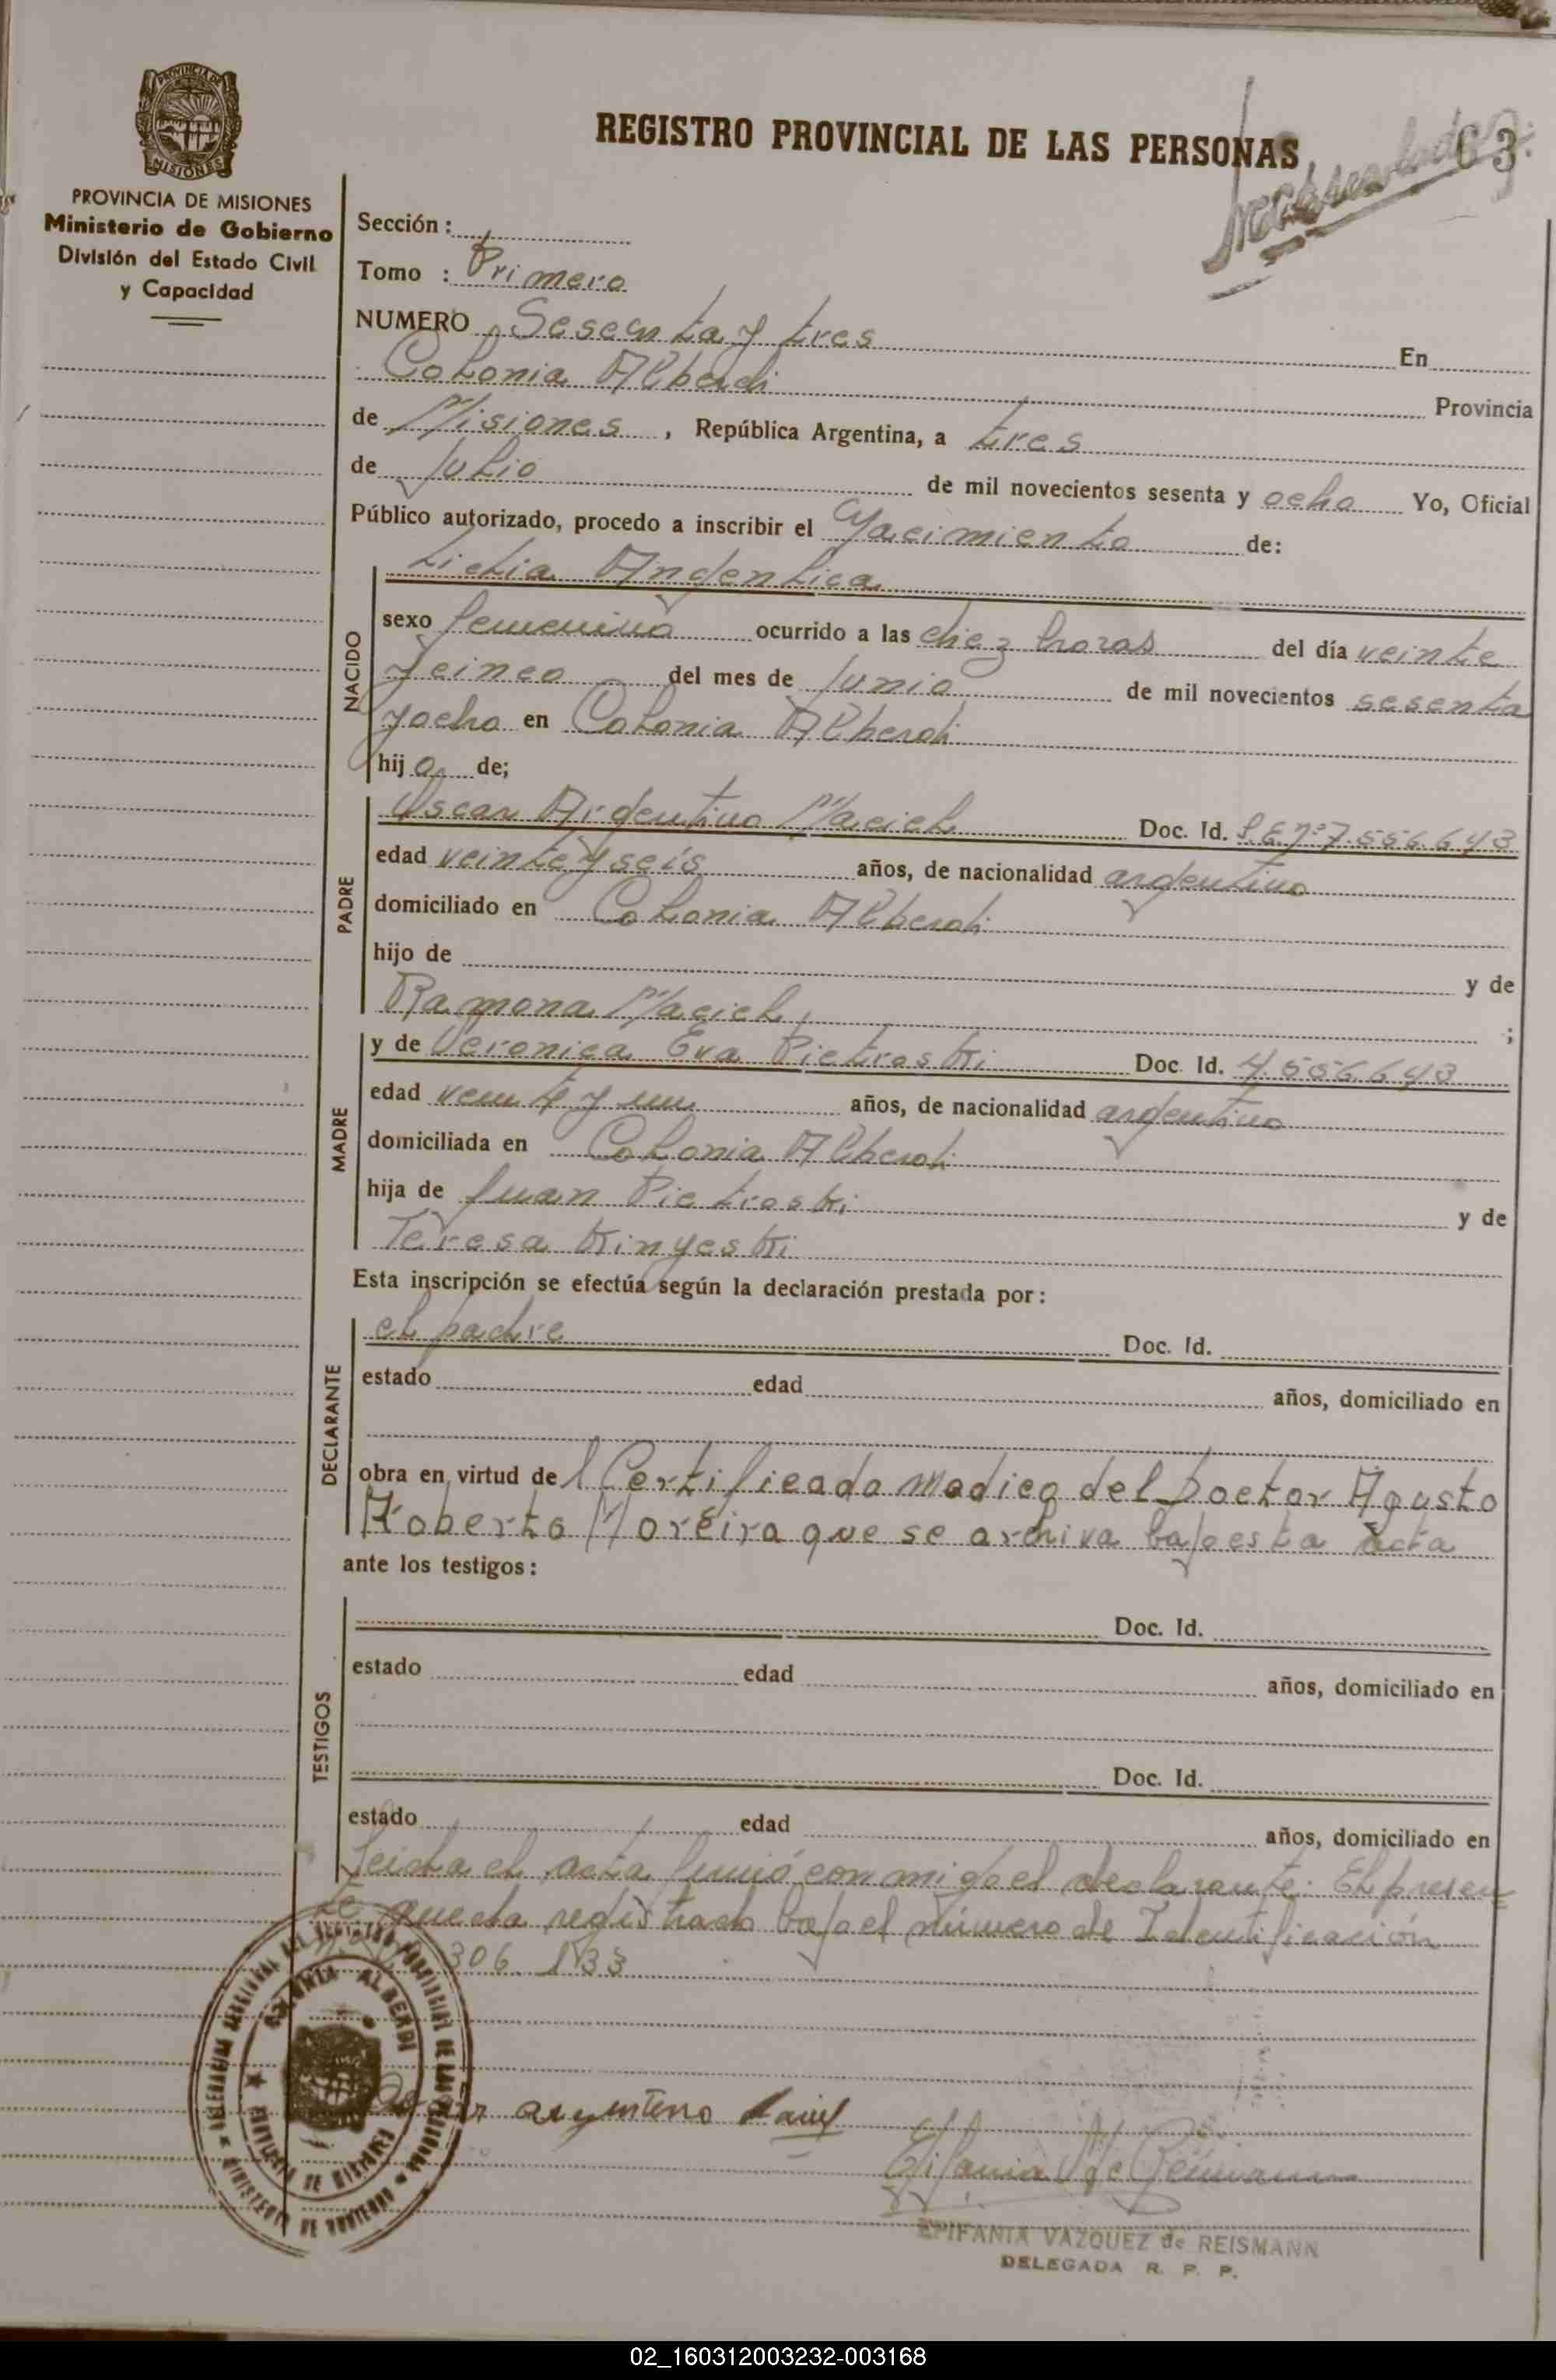 REGISTRO PROVINCIAL DE LAS PERSONAS
63
PROVINCIA DE MISIONES
PROVINCIA DE MISIONES
Ministerio de Gobierno
División del Estado Civil
y Capacidad
Sección:
Tomo : Primero
NUMERO Sesenta y tres En
Colonia Alberdi Provincia
de Misiones, República Argentina, a tres
de Julio de mil novecientos sesenta y ocho Yo, Oficial
Público autorizado, procedo a inscribir el Nacimiento de:
NACIDO
sexo femenino ocurrido a las diez horas del día veinte
y cinco del mes de Junio de mil novecientos sesenta
y ocho en Colonia Alberdi
hij a de;
PADRE
Oscar Argentino Maciel Doc. Id. L.E. nº 7.556.643
edad veinte y seis años, de nacionalidad argentino
domiciliado en Colonia Alberdi
hijo de y de
Ramona Maciel, ;
MADRE
y de Veronica Eva Pietroski Doc. Id. 7.556.643
edad veinte y un años, de nacionalidad argentino
domiciliada en Colonia Alberdi
hija de Juan Pietroski y de
Teresa Kinyeski
Esta inscripción se efectúa según la declaración prestada por:
DECLARANTE
el padre Doc. Id.
estado edad años, domiciliado en
obra en virtud de l Certificado Medico del Doctor Agusto
Roberto Moreira que se archiva bajo esta acta
ante los testigos:
TESTIGOS
Doc. Id.
estado edad años, domiciliado en
Doc. Id.
estado edad años, domiciliado en
Leida el acta firmó conmigo el declarante. El presen
te queda registrado bajo el número de Identificación
306.133
COLONIA ALBERDI
Oscar argentino Maciel
EPIFANIA VAZQUEZ de REISMANN
DELEGADA R. P. P.
02_160312003232-003168